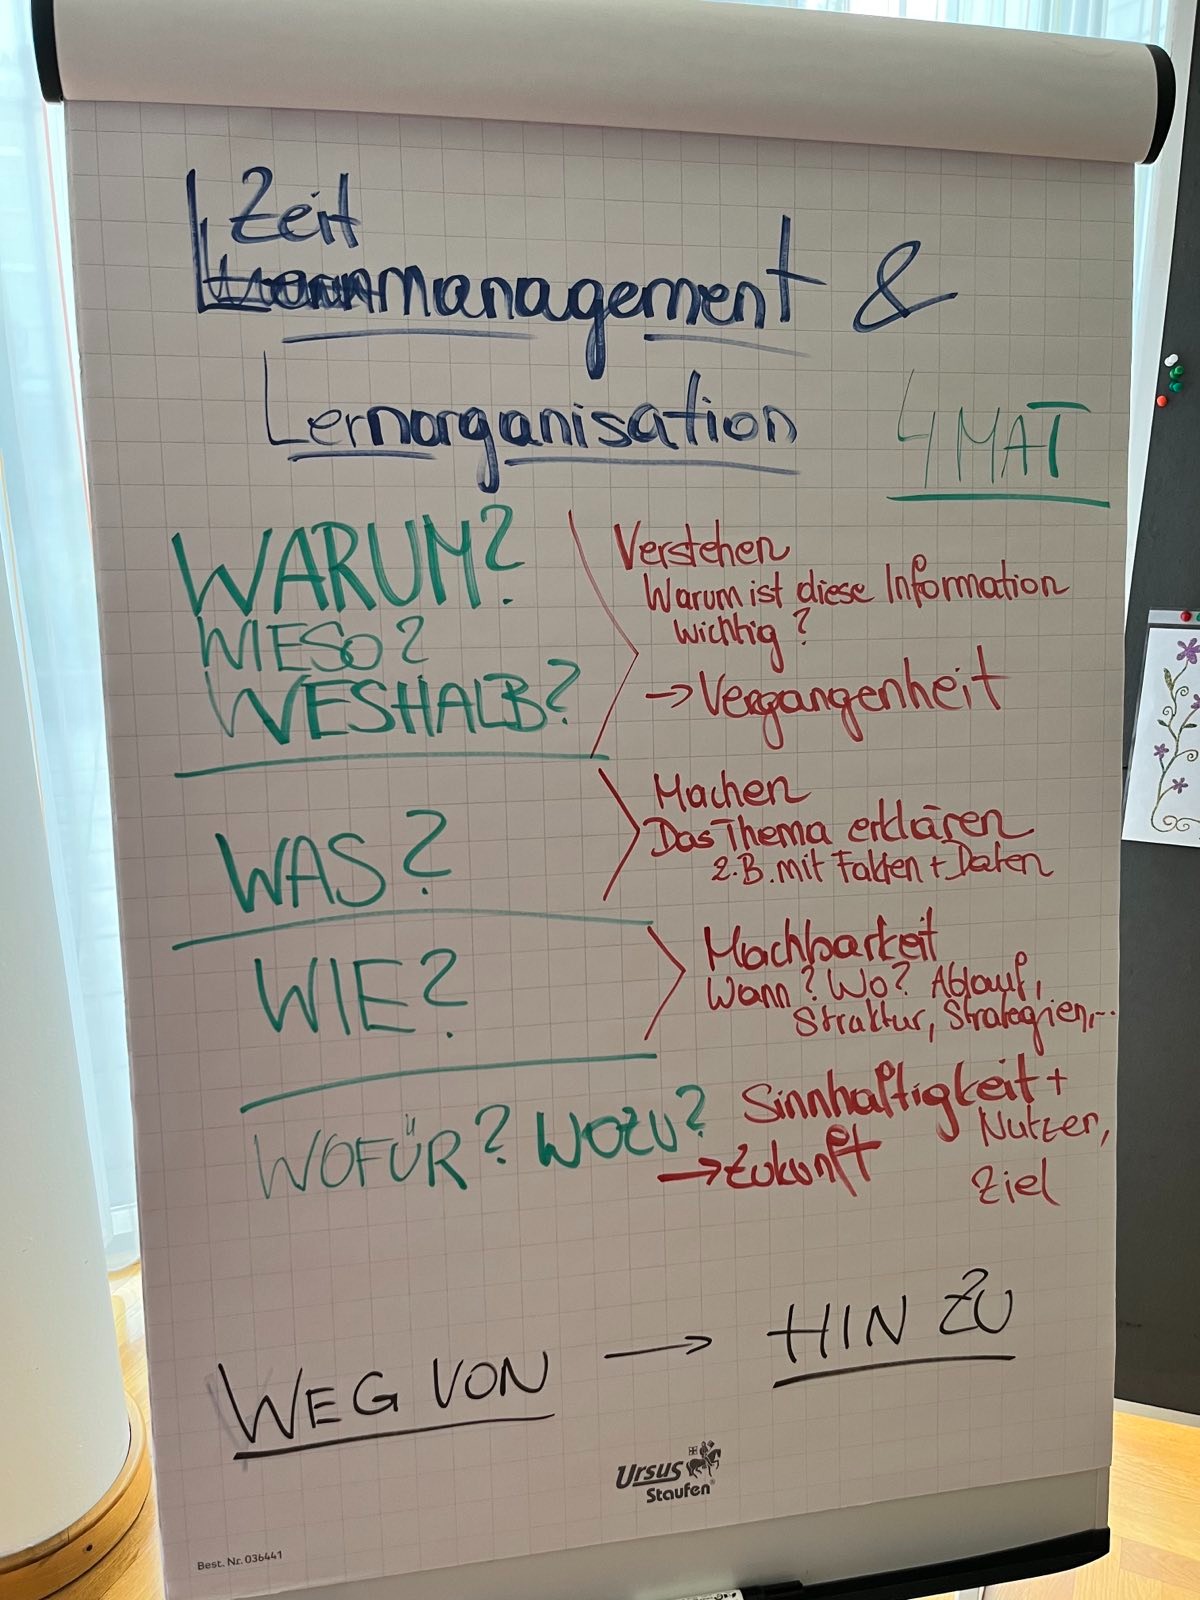 Zeit
management &
Lernorganisation
4 MAT
WARUM?
WIESO?
WESHALB?
Verstehen
Warum ist diese Information
wichtig?
→ Vergangenheit
WAS?
Machen
Das Thema erklären
z.B. mit Fakten + Daten
WIE?
Machbarkeit
Wann? Wo? Ablauf,
Struktur, Strategien,...
WOFÜR? WOZU?
Sinnhaftigkeit +
Nutzen,
→ Zukunft
Ziel
WEG VON → HIN ZU
Ursus
Staufen
Best. Nr. 036441